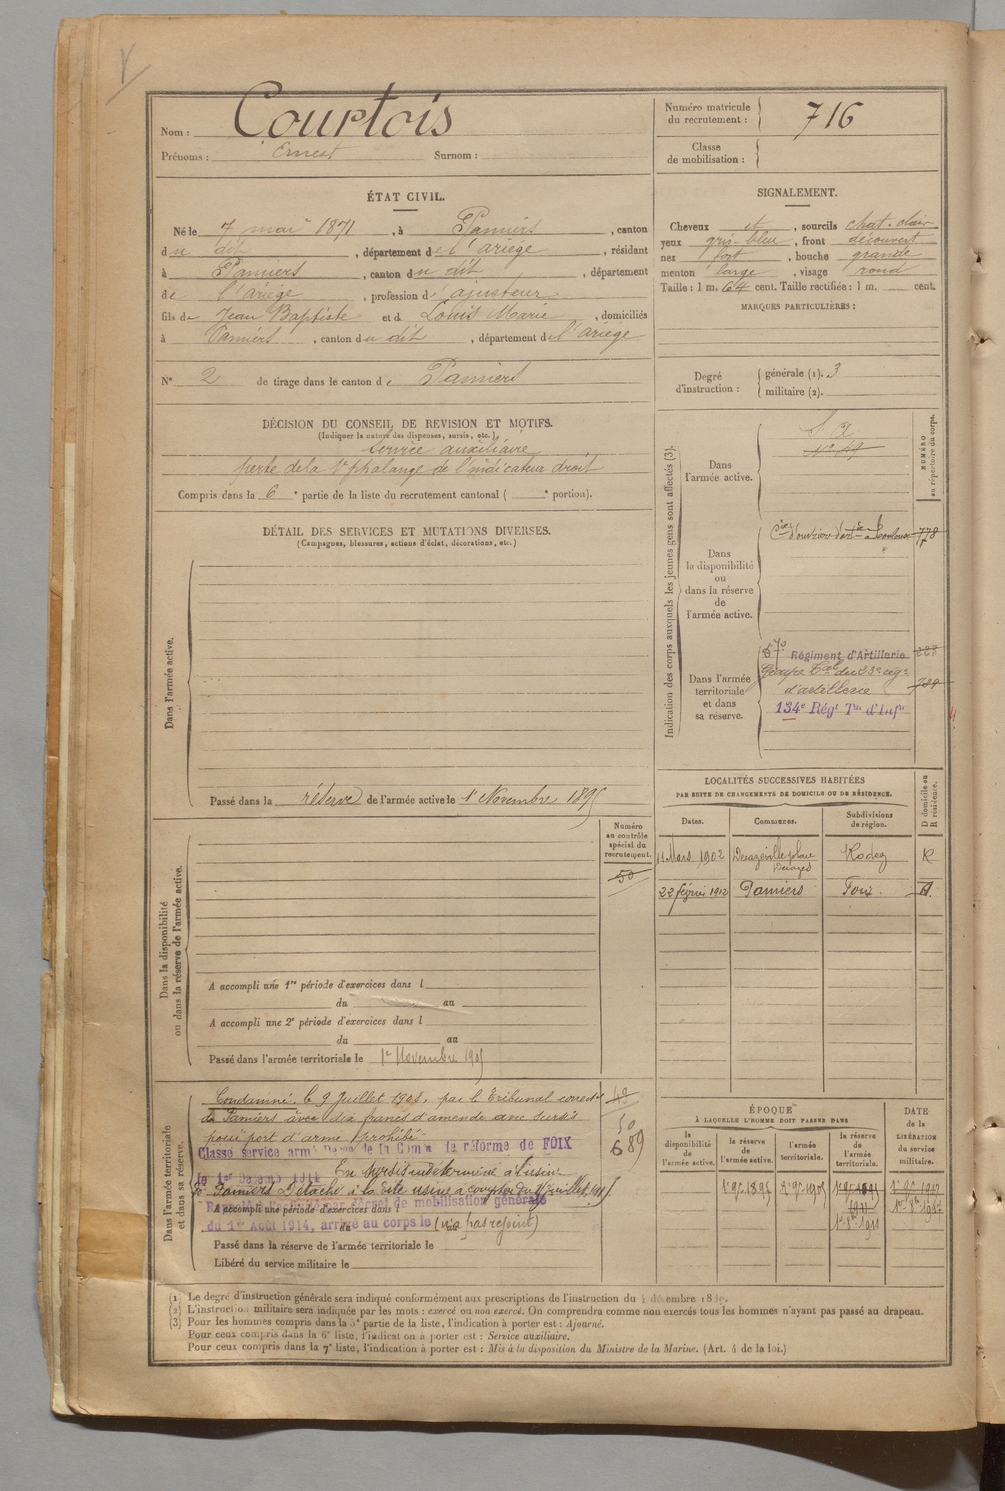 Nom : Courtois
Prénoms : Ernest Surnom :
Numéro matricule du recrutement : 716
Classe de mobilisation :
ÉTAT CIVIL.
Né le 7 mai 1871, à Pamiers, canton
du dit, département de l'ariège, résidant
à Pamiers, canton du dit, département
de l'ariège, profession d'ajusteur
fils de Jean Baptiste et d Louis Marie, domiciliés
à Pamiers, canton du dit, département de l'ariège
N° 2 de tirage dans le canton de Pamiers
SIGNALEMENT.
Cheveux et, sourcils chat. clair
yeux gris-bleu, front découvert
nez fort, bouche grande
menton large, visage rond
Taille : 1 m. 64 cent. Taille rectifiée : 1 m. cent.
MARQUES PARTICULIÈRES :
Degré d'instruction : générale (1). 3
militaire (2).
DÉCISION DU CONSEIL DE REVISION ET MOTIFS.
(Indiquer la nature des dispenses, sursis, etc.)
Service auxiliaire
perte de la 1e phalange de l'indicateur droit
Compris dans la 6e partie de la liste du recrutement cantonal ( e portion).
DÉTAIL DES SERVICES ET MUTATIONS DIVERSES.
(Campagnes, blessures, actions d'éclat, décorations, etc.)
Dans l'armée active.
Passé dans la réserve de l'armée active le 1er Novembre 1895
Dans la disponibilité ou dans la réserve de l'armée active.
Numéro au contrôle spécial du recrutement.
50
A accompli une 1re période d'exercices dans l
du au
A accompli une 2e période d'exercices dans l
du au
Passé dans l'armée territoriale le 1er Novembre 1905
Dans l'armée territoriale et dans sa réserve.
Condamné, le 9 Juillet 1908, par le Tribunal correct.
de Pamiers à dix francs d'amende avec sursis
pour port d'arme prohibé
Classe service armé de la réforme de FOIX
En sursis indeterminé à l'usine
Pamiers Détaché à la dite usine à compter du 1er juillet 1917
décret de mobilisation générale
A accompli une période d'exercices dans l
du 1er Août 1914, arrivé au corps le (n'a pas rejoint)
Passé dans la réserve de l'armée territoriale le
Libéré du service militaire le
50
689
Indication des corps auxquels les jeunes gens sont affectés (3).
NUMÉRO au répertoire du corps.
Dans l'armée active.
S. A
Dans la disponibilité ou dans la réserve de l'armée active.
Cies d'ouvriers d'artie à Toulouse 778
Dans l'armée territoriale et dans sa réserve.
Régiment d'Artillerie
Groupe Tal du 23e rég.
d'artillerie
134e Régt Tal d'Infie
LOCALITÉS SUCCESSIVES HABITÉES
PAR SUITE DE CHANGEMENTS DE DOMICILE OU DE RÉSIDENCE.
D domicile ou R résidence.
Dates. Communes. Subdivisions de région.
11 Mars 1902 Decazeville place Decazes Rodez R
22 février 1912 Pamiers Foix.
ÉPOQUE
À LAQUELLE L'HOMME DOIT PASSER DANS
DATE de la LIBÉRATION du service militaire.
la disponibilité de l'armée active. la réserve de l'armée active. l'armée territoriale. la réserve de l'armée territoriale.
1er 9bre 1895 1er 9bre 1905 1911
(1) Le degré d'instruction générale sera indiqué conformément aux prescriptions de l'instruction du 4 décembre 1889.
(2) L'instruction militaire sera indiquée par les mots : exercé ou non exercé. On comprendra comme non exercés tous les hommes n'ayant pas passé au drapeau.
(3) Pour les hommes compris dans la 5e partie de la liste, l'indication à porter est : Ajourné.
Pour ceux compris dans la 6e liste, l'indication à porter est : Service auxiliaire.
Pour ceux compris dans la 7e liste, l'indication à porter est : Mis à la disposition du Ministre de la Marine. (Art. 4 de la loi.)